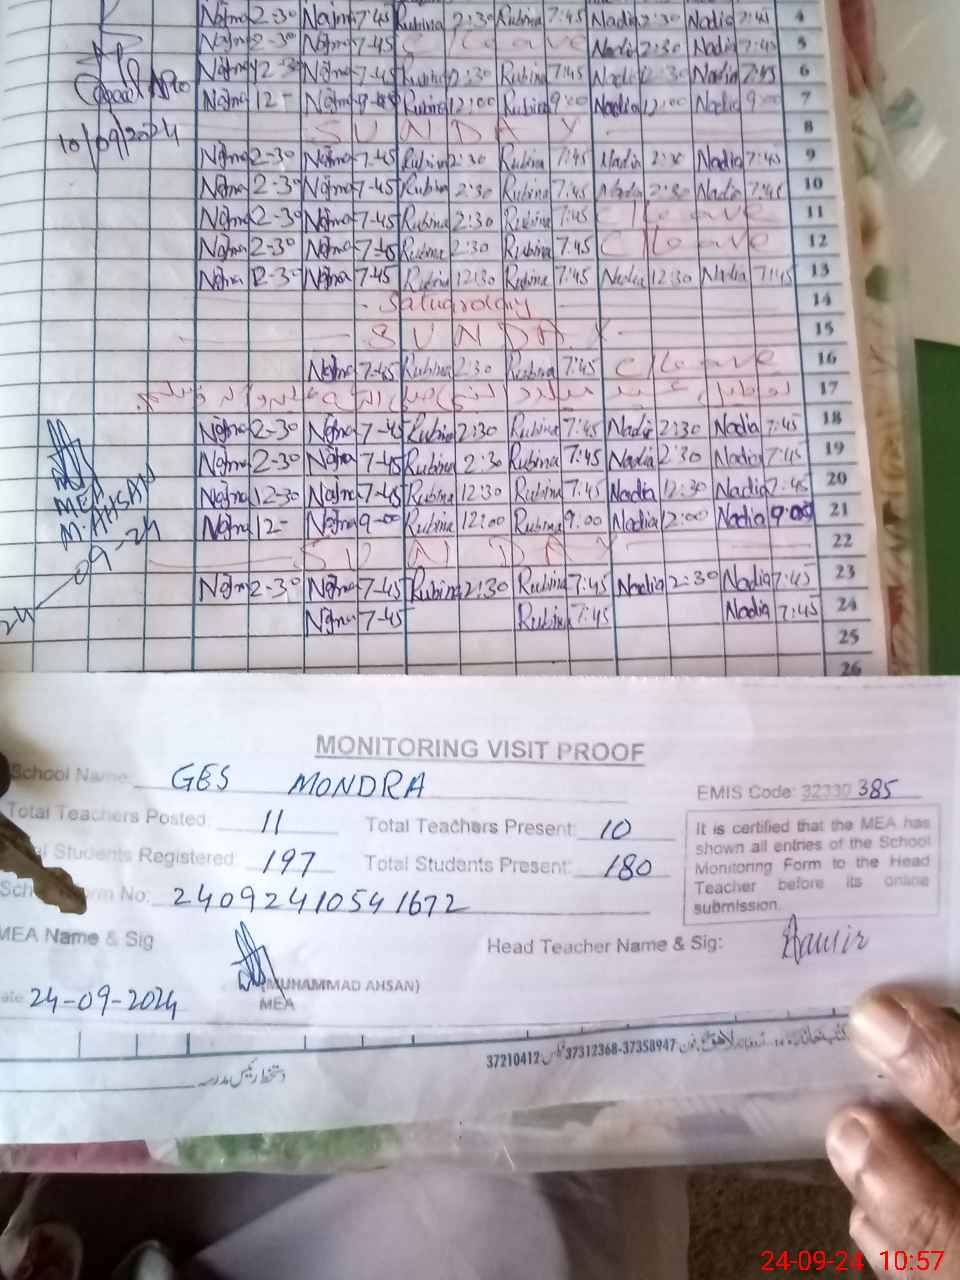 Najma 2-30 Najma 7-45 Rubina 2:30 Rubina 7:45 Nadia 2:30 Nadia 7:45 4
Najma 2-30 Najma 7-45 C/leave Nadia 2:30 Nadia 7:45 5
Najma 2-30 Najma 7-45 Rubina 2:30 Rubina 7:45 Nadia 2:30 Nadia 7:45 6
Najma 12- Najma 9-00 Rubina 12:00 Rubina 9:00 Nadia 12:00 Nadia 9:00 7
10/09/2024
SUNDAY 8
Najma 2-30 Najma 7-45 Rubina 2:30 Rubina 7:45 Nadia 2:30 Nadia 7:45 9
Najma 2-30 Najma 7-45 Rubina 2:30 Rubina 7:45 Nadia 2:30 Nadia 7:45 10
Najma 2-30 Najma 7-45 Rubina 2:30 Rubina 7:45 C/leave 11
Najma 2-30 Najma 7-45 Rubina 2:30 Rubina 7:45 C/leave 12
Najma 12-30 Najma 7-45 Rubina 12:30 Rubina 7:45 Nadia 12:30 Nadia 7:45 13
Satuarday 14
SUNDAY 15
Najma 7-45 Rubina 2:30 Rubina 7:45 C/leave 16
17
Najma 2-30 Najma 7-45 Rubina 2:30 Rubina 7:45 Nadia 2:30 Nadia 7:45 18
Najma 2-30 Najma 7-45 Rubina 2:30 Rubina 7:45 Nadia 2:30 Nadia 7:45 19
Najma 12-30 Najma 7-45 Rubina 12:30 Rubina 7:45 Nadia 12:30 Nadia 7:45 20
Najma 12- Najma 9-00 Rubina 12:00 Rubina 9:00 Nadia 12:00 Nadia 9:00 21
MEA
M. AHSAN
24-09-24
SUNDAY 22
Najma 2-30 Najma 7-45 Rubina 2:30 Rubina 7:45 Nadia 2:30 Nadia 7:45 23
Najma 7-45 Rubina 7:45 Nadia 7:45 24
25
26
MONITORING VISIT PROOF
School Name GES MONDRA EMIS Code: 32330 385
Total Teachers Posted: 11 Total Teachers Present: 10
Students Registered 197 Total Students Present: 180
No: 24092410541672
It is certified that the MEA has
shown all entries of the School
Monitoring Form to the Head
Teacher before its online
submission.
MEA Name & Sig Head Teacher Name & Sig: Aamir
(MUHAMMAD AHSAN)
MEA
24-09-2024
37210412 37312368-37358947
دستخط رئیس مدرسہ
24-09-24 10:57